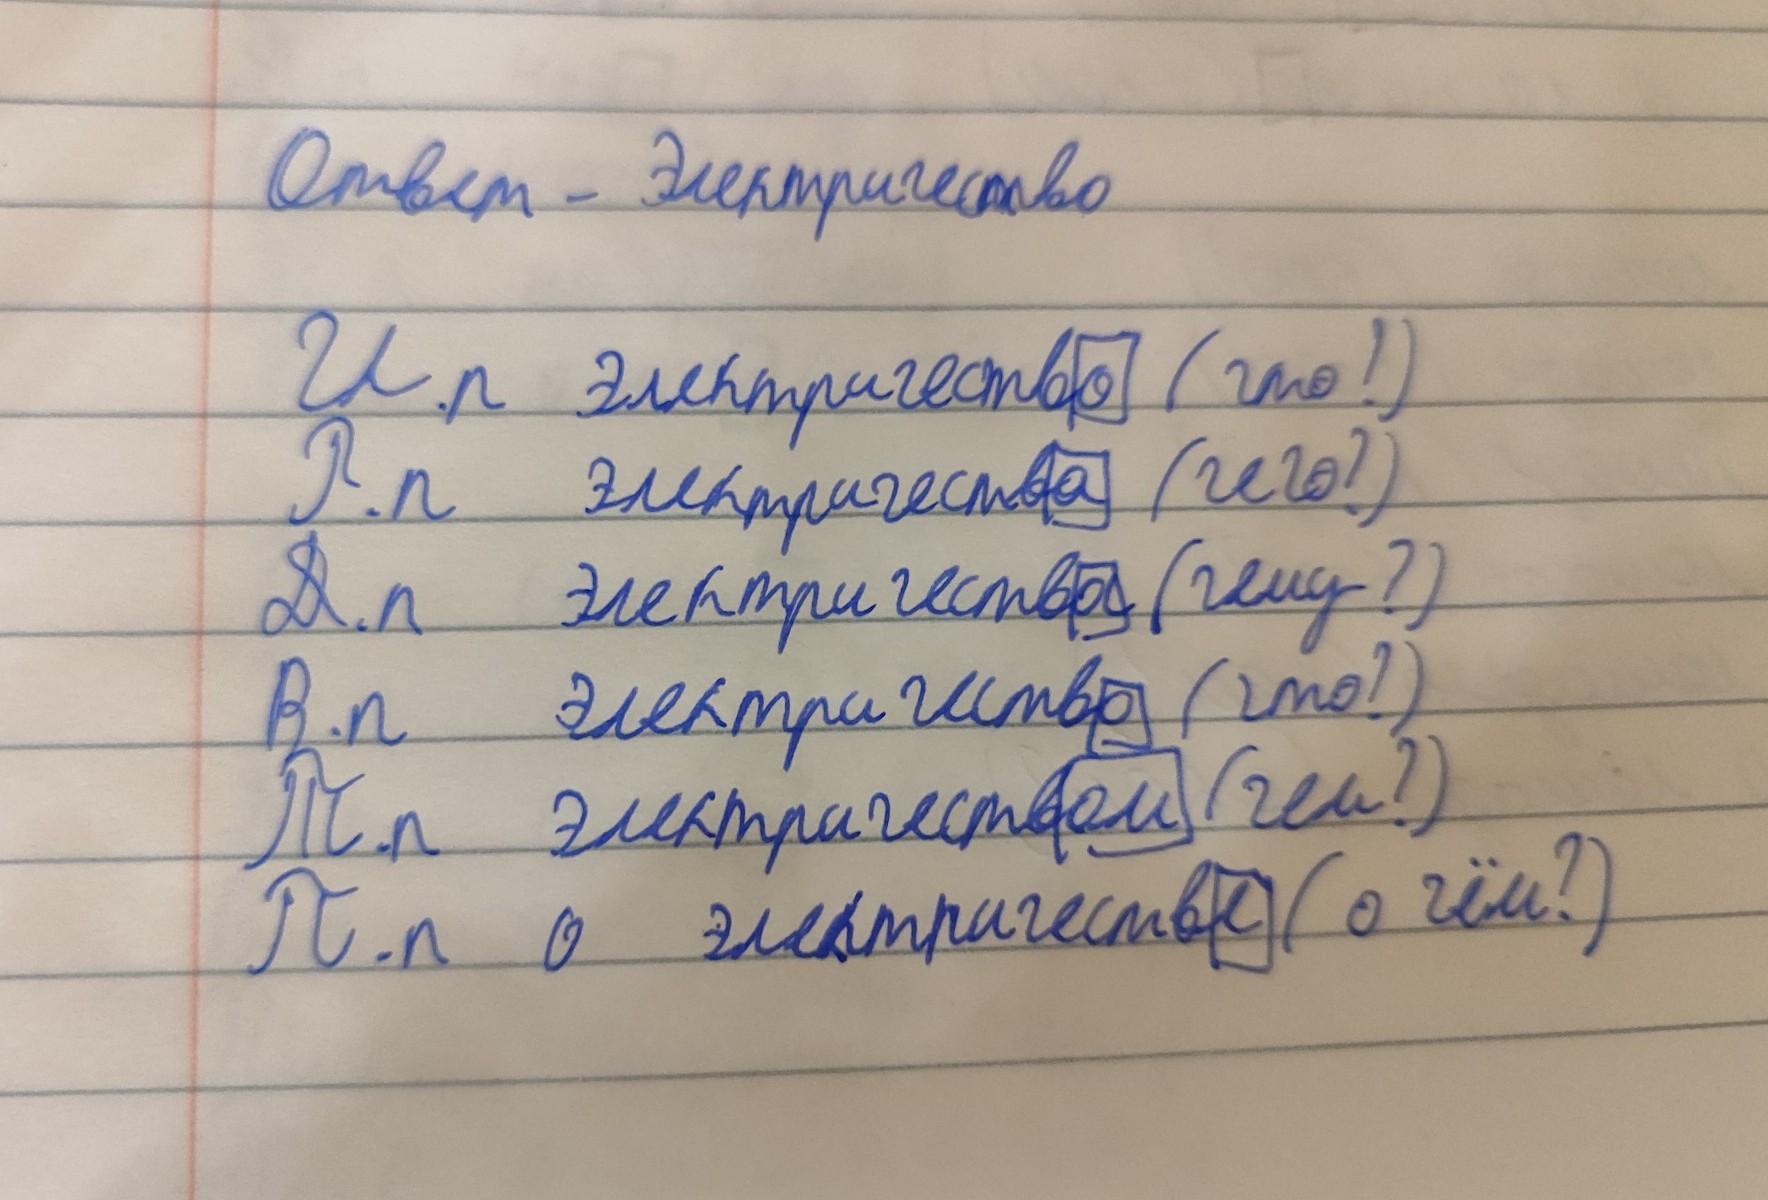 Ответ - Электричество
И.п электричество (что!)
Р.п электричества (чего?)
Д.п электричества (чему?)
В.п электричество (что?)
Т.п электричеством (чем?)
П.п о электричестве (о чём?)